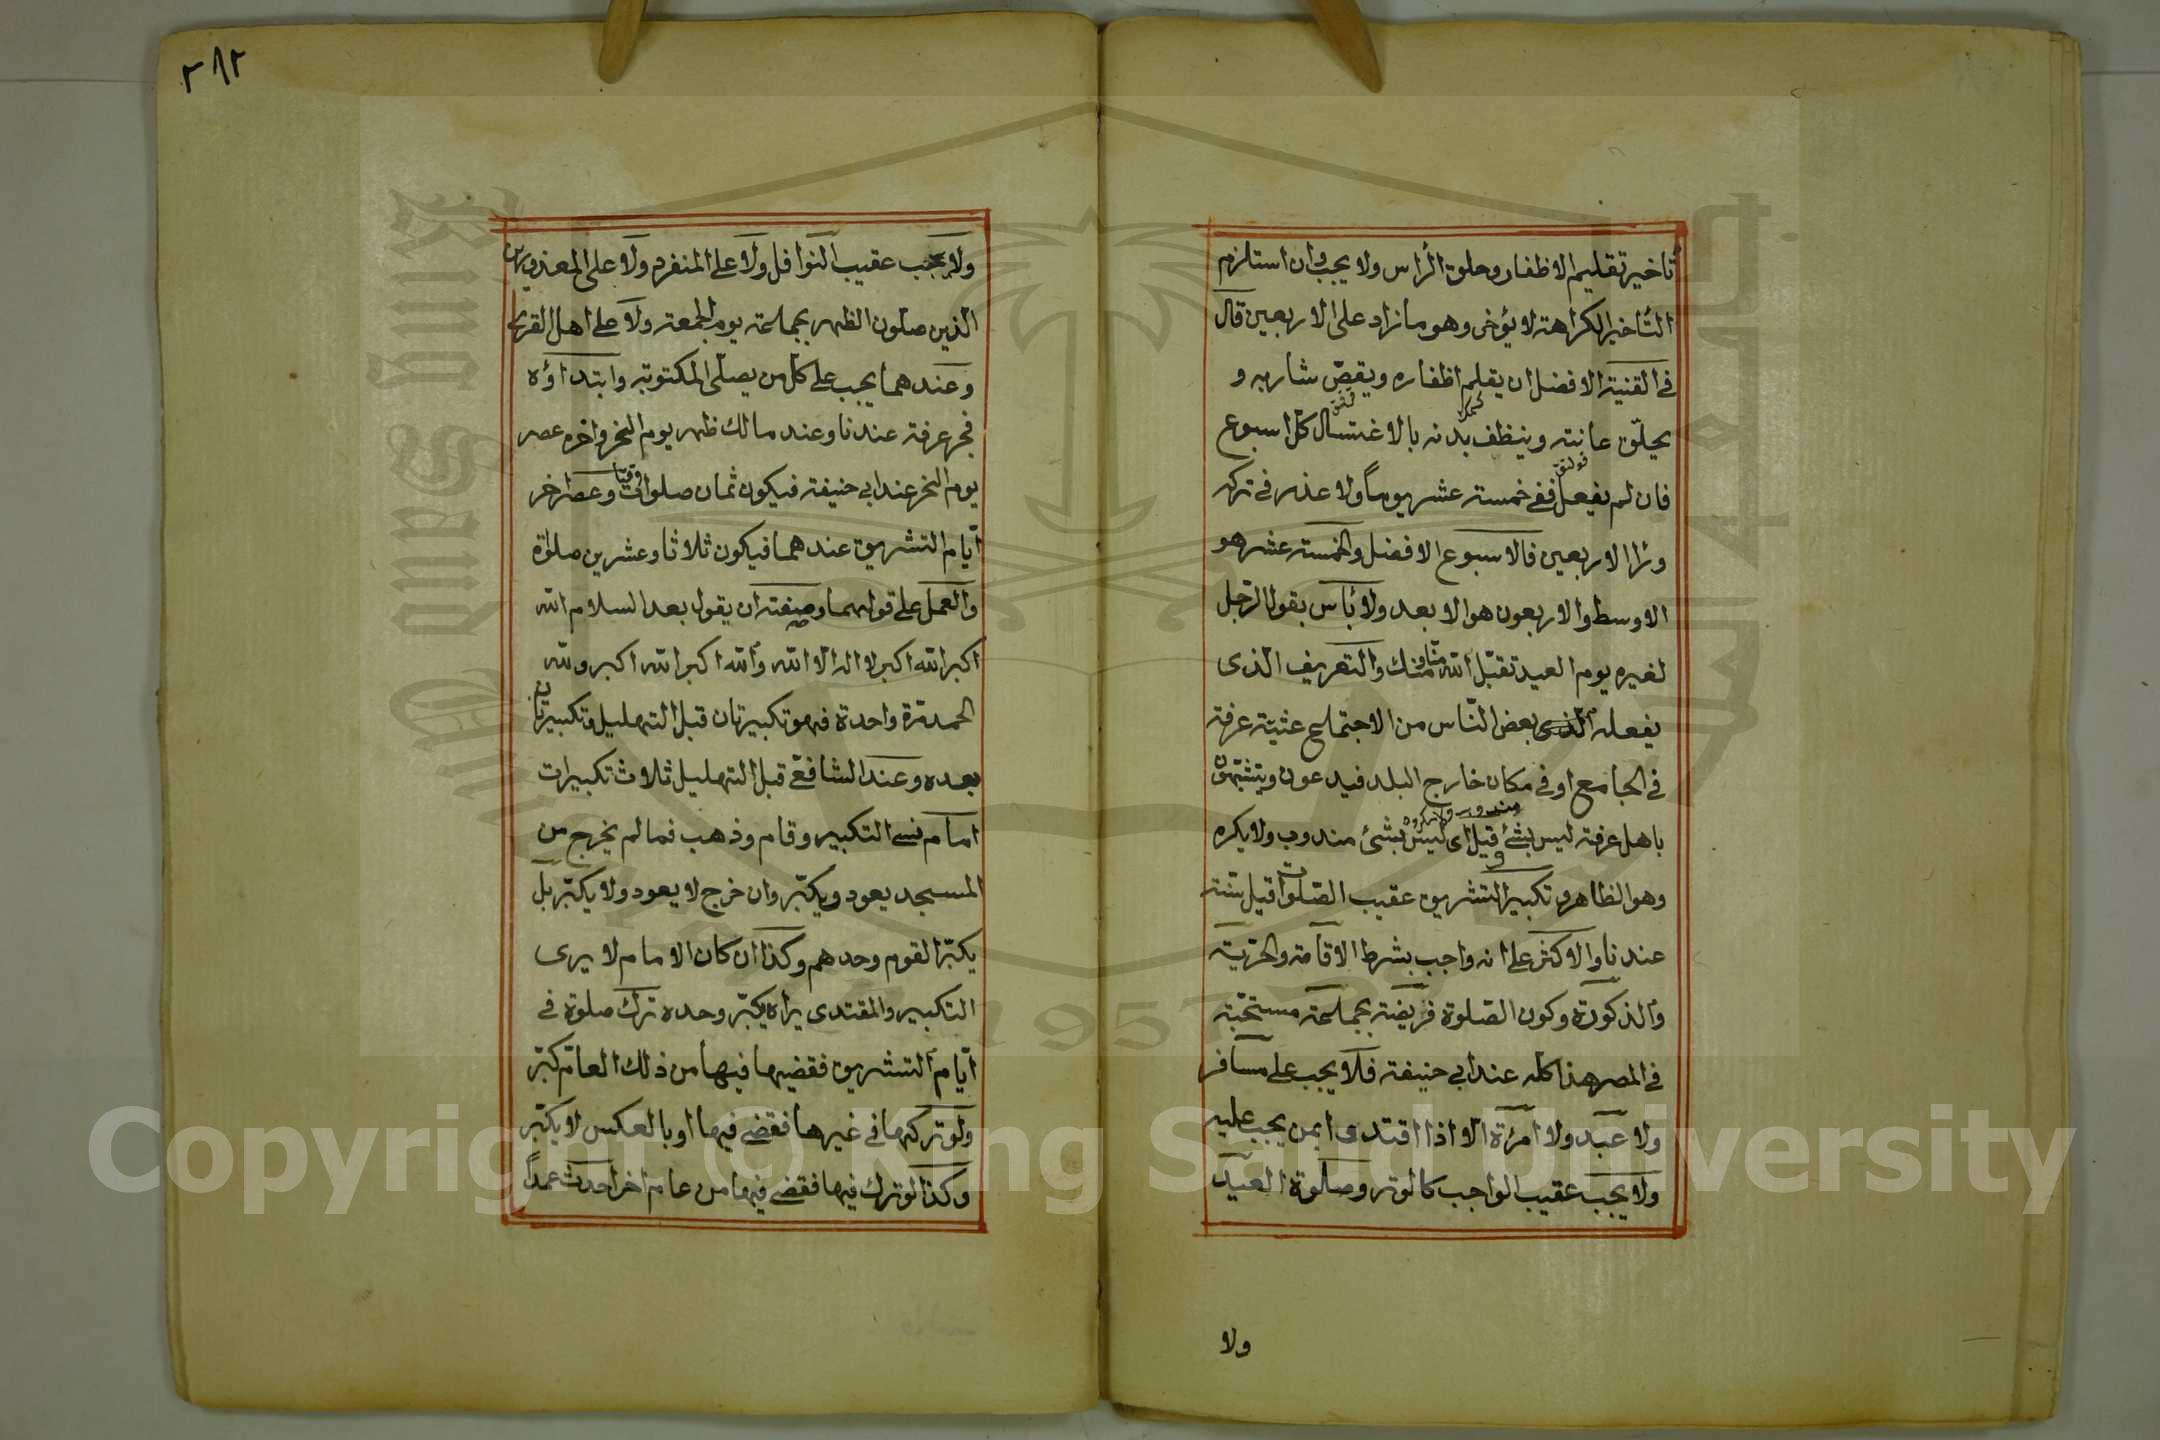 تأخير تقليم الاظفار وحلق الرأس ولا يجب وان استلزم
التأخير الكراهة لا يؤخر وهو ما زاد على الاربعين قال
في القنية الافضل ان يقلم اظفاره ويقص شاربه و
يحلق عانته وينظف بدنه بالاغتسال كل اسبوع
فان لم يفعل ففي خمسة عشر يوماً ولا عذر في تركه
وراا الاربعين فالاسبوع الافضل والخمسة عشر هو
الاوسط والاربعون هو الابعد ولا بأس بقول الرجل
لغيره يوم العيد تقبل الله منا ومنك والتعريف الذى
يفعله الذى بعض الناس من الاجتماع عشية عرفة
في الجامع او في مكان خارج البلد فيدعون ويتشبهون
باهل عرفة ليس بشئ قيل اى ليس بشئ مندوب ولا يكره
وهو الظاهر وتكبير التشريق عقيب الصلوات قيل سنة
عندنا والاكثر على انه واجب بشرط الاقامة والحرية
والذكورة وكون الصلوة فريضة بجماعة مستحبة
في المصر هذا كله عند ابي حنيفة فلا يجب على مسافر
ولا عبد ولا امرأة الا اذا اقتدى ايمن يجب عليه
ولا يجب عقيب الواجب كالوتر وصلوة العيد
ولا
٢٨٢
ولا يجب عقيب النوافل ولا على المنفرد ولا على المعذورين
الذين صلون الظهر بجماعة يوم الجمعة ولا على اهل القرى
وعندهما يجب على كل من يصلى المكتوبة وابتداؤه
فجر عرفة عندنا وعند مالك ظهر يوم النحر واخره عصر
يوم النحر عند ابي حنيفة فيكون ثمان صلوات وعصر اخر
ايام التشريق عندهما فيكون ثلاثا وعشرين صلوة
والعمل على قولهما وصفته ان يقول بعد السلام الله
اكبر الله اكبر لا اله الا الله والله اكبر الله اكبر ولله
الحمد مرة واحدة فهو تكبيرتان قبل التهليل وتكبيرتان
بعده وعند الشافعي قبل التهليل ثلاث تكبيرات
امام نسى التكبير وقام وذهب فما لم يخرج من
المسجد يعود ويكبر وان خرج لا يعود ولا يكبر بل
يكبر القوم وحدهم وكذا ان كان الامام لا يرى
التكبير والمقتدى يراه يكبر وحده ترك صلوة في
ايام التشريق فقضيها فيها من ذلك العام كبر
ولو تركها في غيرها فقضى فيها او بالعكس لا يكبر
وكذا لو ترك فيها فقضى فيها من عام اخر احدث عمداً
Copyright © King Saud University
1957